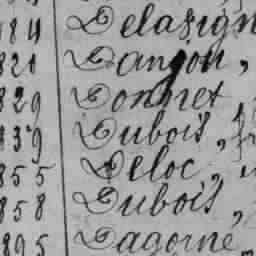 814 Delasign
821 Danjou,
829 Donnet
839 Dubois,
855 Deloc,
858 Dubois,
895 Dagorne,